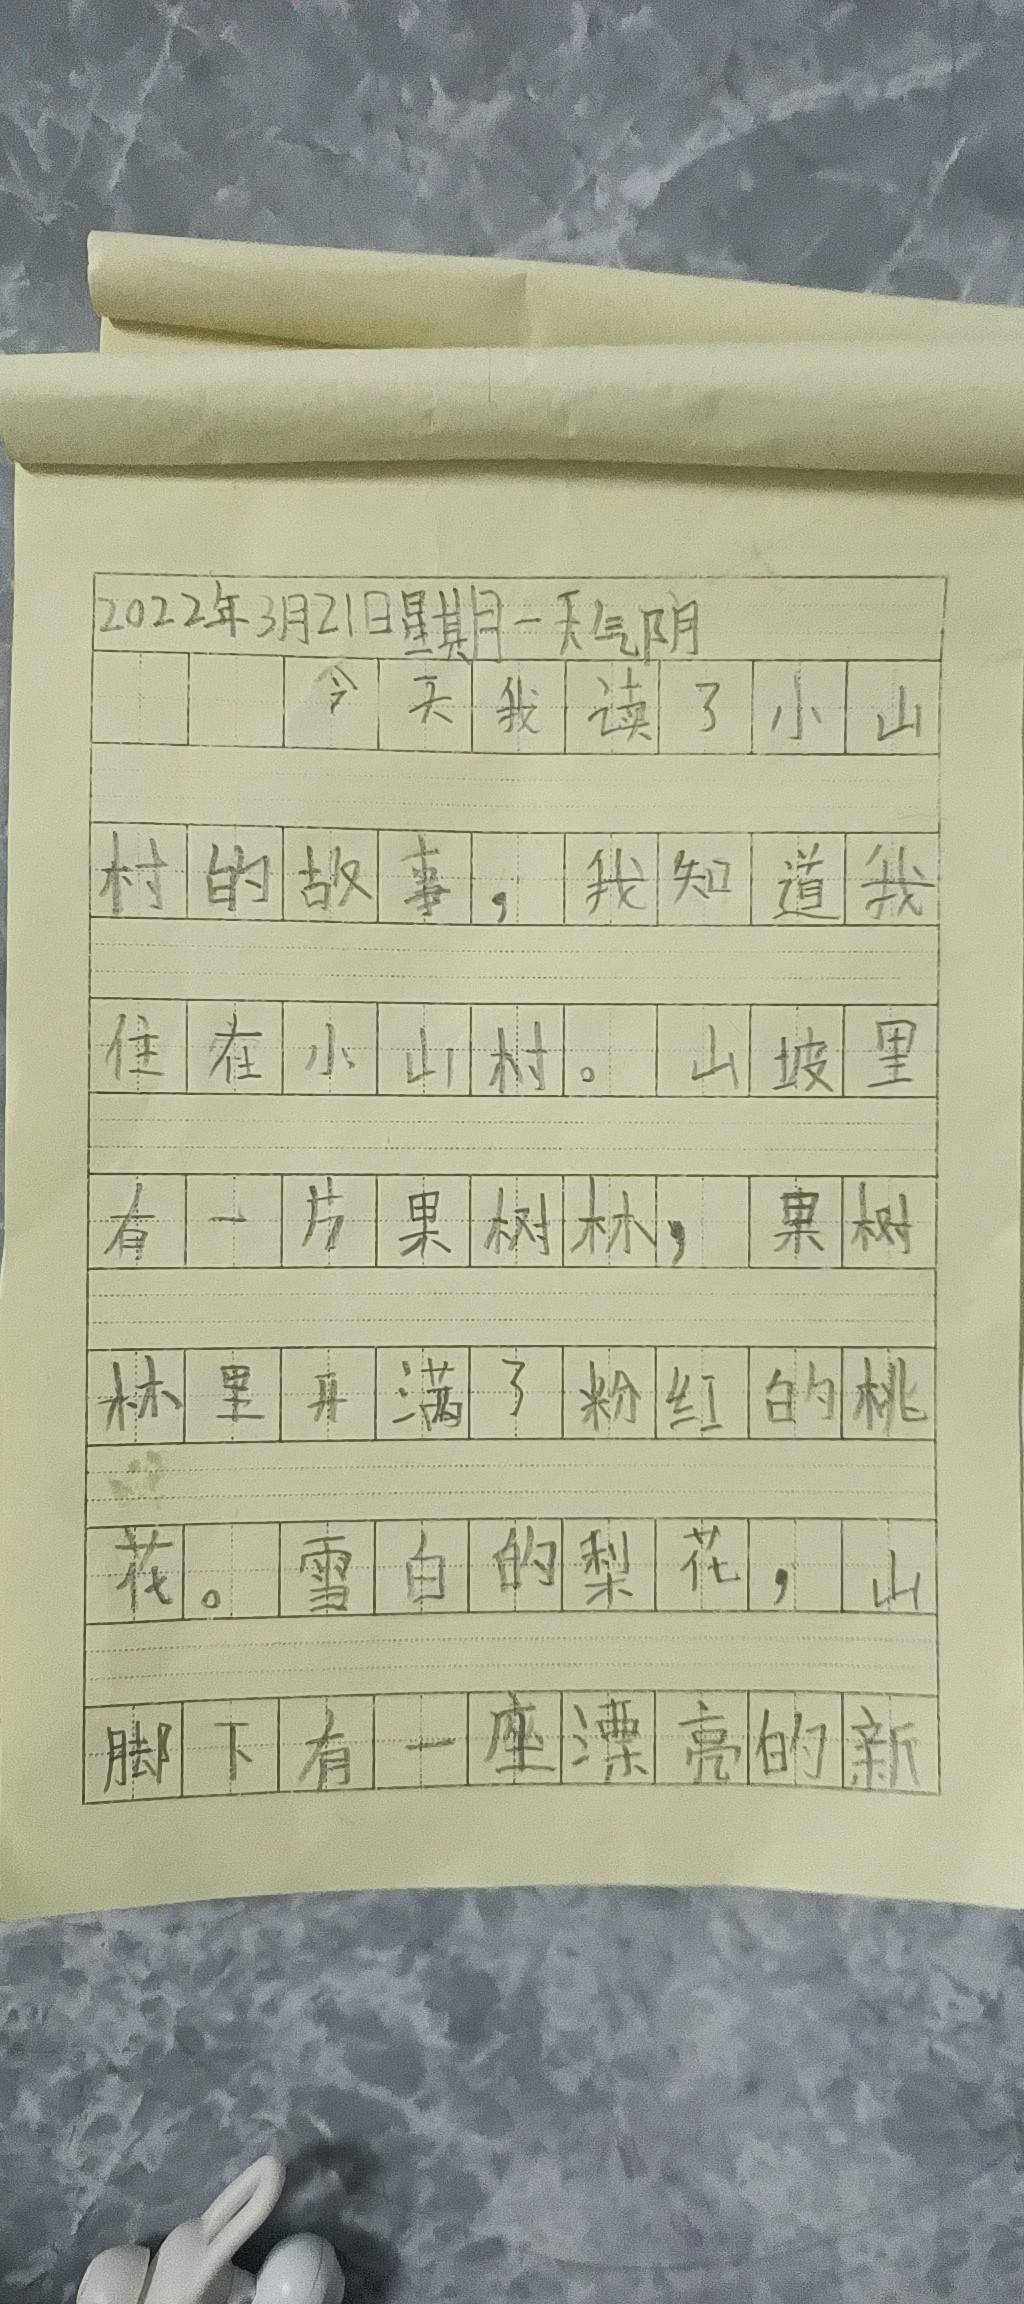 2022年3月21日星期一天气阴
今天我读了小山
村的故事，我知道我
住在小山村。山坡里
有一片果树林，果树
林里开满了粉红的桃
花。雪白的梨花，山
脚下有一座漂亮的新